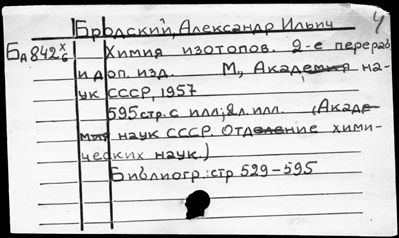 Бродский, Александр Ильич
4
Ба842 х/6
Химия изотопов. 2-е перераб
и доп. изд. М., Академия на-
ук СССР, 1957
595 стр. с илл; 2л. илл. (Акаде-
мия наук СССР. Отделение хими-
ческих наук.)
Библиогр.: стр 529-595